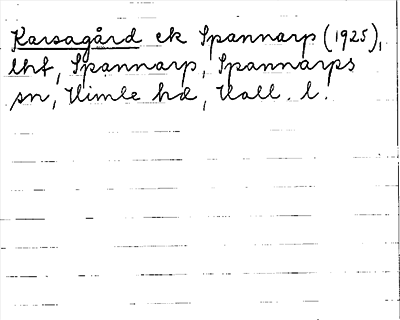 Karsagård ek Spannarp (1925),
lht, Spannarp, Spannarps
sn, Himle hd, Hall. l.